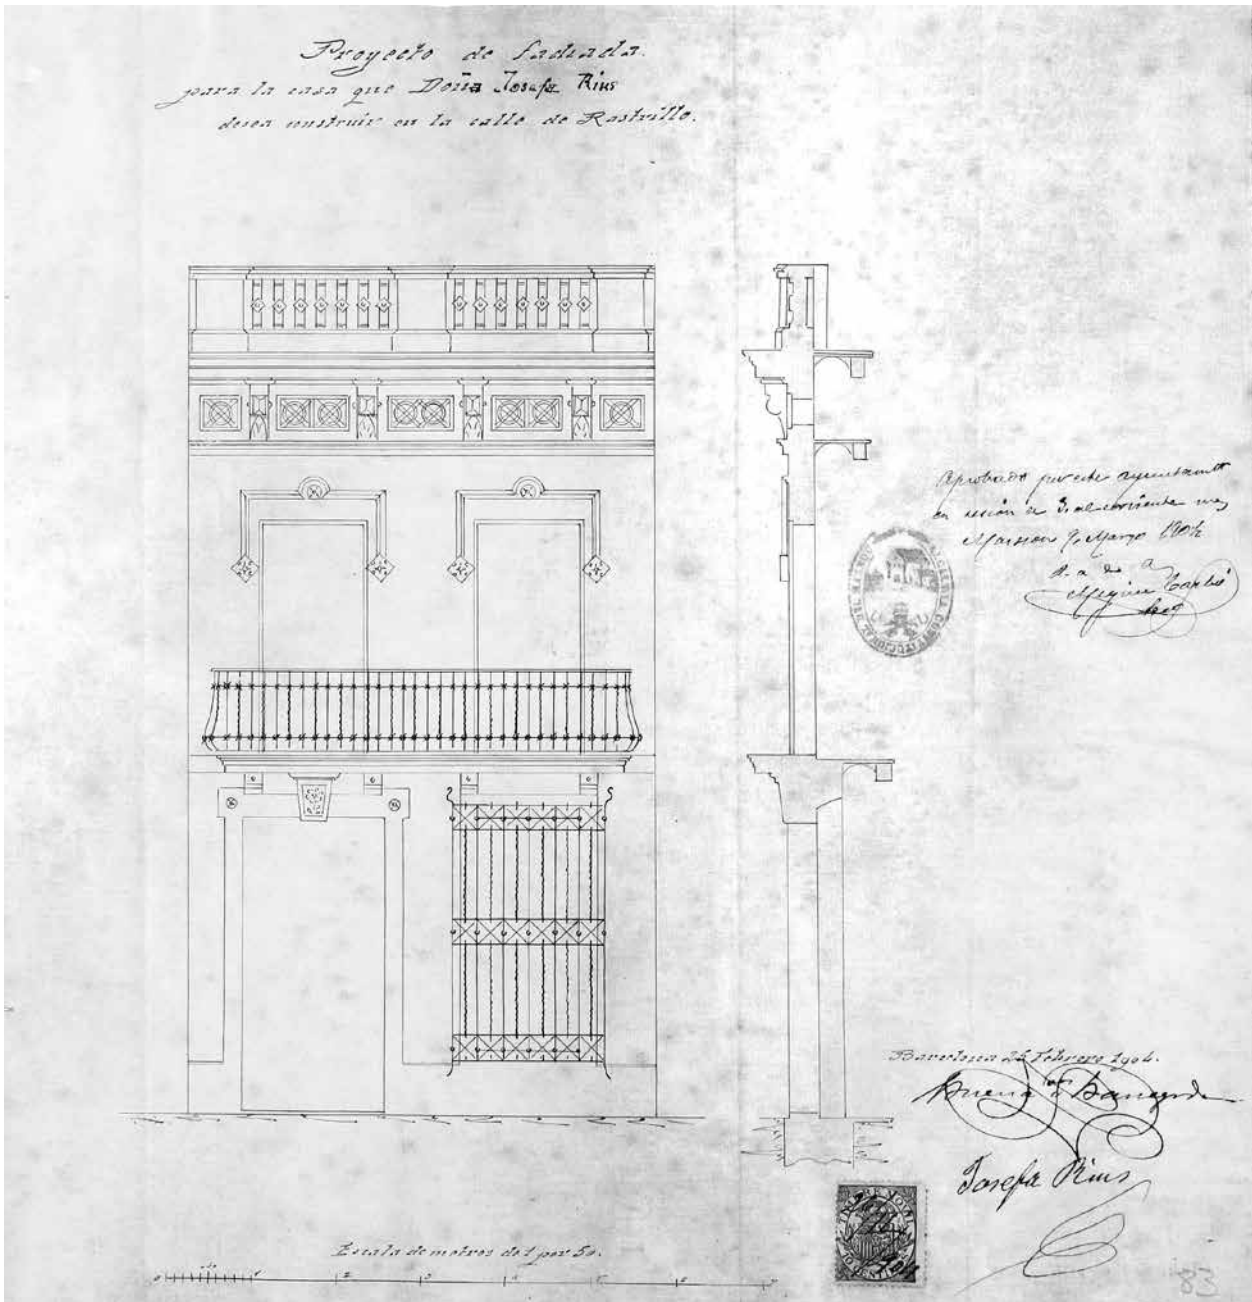 Proyecto de fachada.
para la casa que Doña Josefa Rius
desea construir en la calle de Rastrillo.
Aprobado por este ayuntamto
en sesión de 3 del corriente mes
9 Marzo 1904
Barcelona 25 Febrero 1904.
Josefa Rius
Escala de metros de 1 por 50.
0 1 2 3 4 5 6 7
83